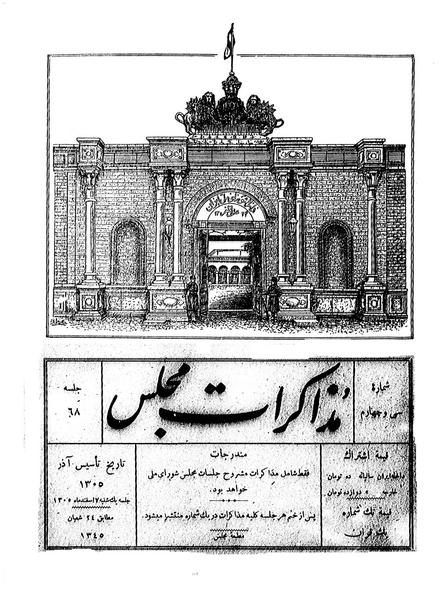 شمارهٔ
سی و چهارم
مذاکرات مجلس
جلسه
۶۸
قیمة اشتراك
داخله ایران سالیانه ده تومان
خارجه » دوازده تومان
قیمة تك شماره
يك قران
مندرجات
فقط شامل مذاکرات مشروح جلسات مجلس شورای ملی
خواهد بود.
پس از ختم هر جلسه کلیه مذاکرات در يك شماره منتشر میشود.
مطبعه مجلس
تاریخ تأسیس آذر
۱۳۰۵
جلسه یکشنبه ۷ اسفندماه ۱۳۰۵
مطابق ۲۴ شعبان
۱۳۴۵